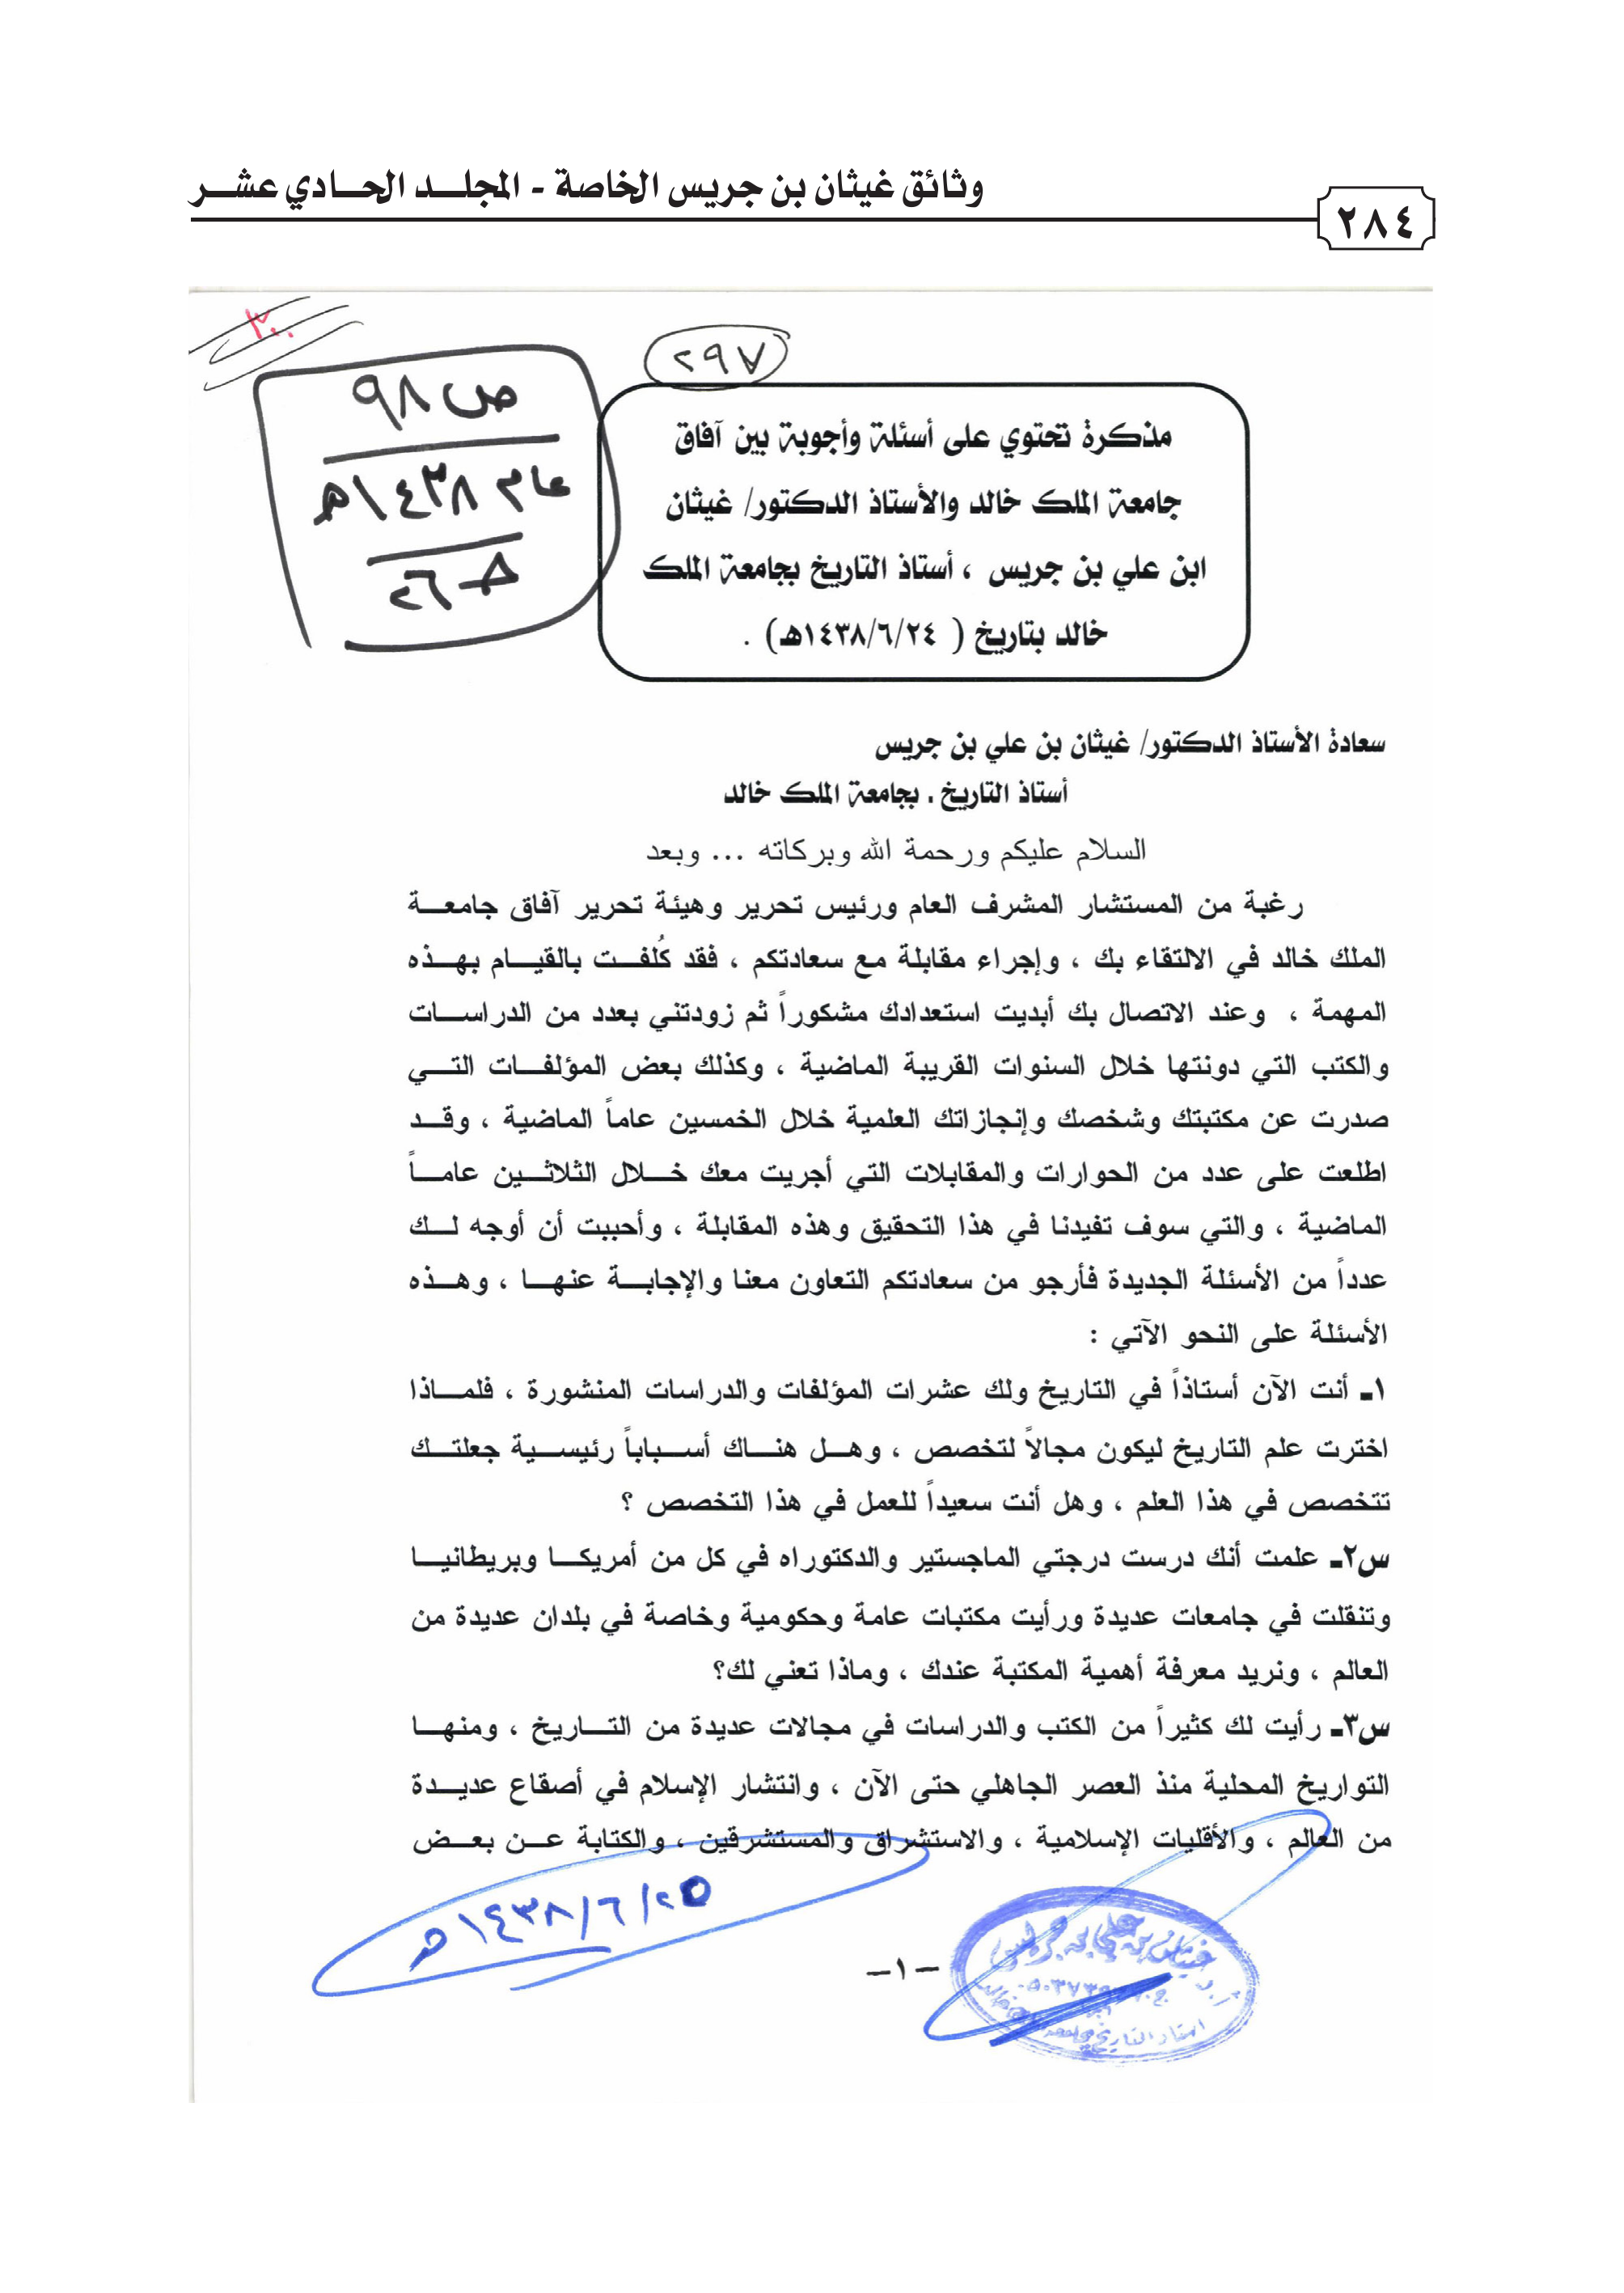 وثائق غيثان بن جريس الخاصة - المجلـــد الحـــادي عشـــر
٢٨٤
٣٠٠
٢٩٧
ص ٩٨
عام ١٤٣٨هـ
مذكرة تحتوي على أسئلة وأجوبة بين آفاق
جامعة الملك خالد والأستاذ الدكتور/ غيثان
ابن علي بن جريس ، أستاذ التاريخ بجامعة الملك
خالد بتاريخ ( ١٤٣٨/٦/٢٤هـ) .
سعادة الأستاذ الدكتور/ غيثان بن علي بن جريس
أستاذ التاريخ . بجامعة الملك خالد
السلام عليكم ورحمة الله وبركاته ... وبعد
رغبة من المستشار المشرف العام ورئيس تحرير وهيئة تحرير آفاق جامعـــة
الملك خالد في الالتقاء بك ، وإجراء مقابلة مع سعادتكم ، فقد كُلفـــت بالقيـــام بهـــذه
المهمة ، وعند الاتصال بك أبديت استعدادك مشكوراً ثم زودتني بعدد من الدراســـات
والكتب التي دونتها خلال السنوات القريبة الماضية ، وكذلك بعض المؤلفـــات التـــي
صدرت عن مكتبتك وشخصك وإنجازاتك العلمية خلال الخمسين عاماً الماضية ، وقـــد
اطلعت على عدد من الحوارات والمقابلات التي أجريت معك خـــلال الثلاثـــين عامـــاً
الماضية ، والتي سوف تفيدنا في هذا التحقيق وهذه المقابلة ، وأحببت أن أوجه لـــك
عدداً من الأسئلة الجديدة فأرجو من سعادتكم التعاون معنا والإجابـــة عنهـــا ، وهـــذه
الأسئلة على النحو الآتي :
١ـ أنت الآن أستاذاً في التاريخ ولك عشرات المؤلفات والدراسات المنشورة ، فلمـــاذا
اخترت علم التاريخ ليكون مجالاً لتخصص ، وهـــل هنـــاك أســـباباً رئيســـية جعلتـــك
تتخصص في هذا العلم ، وهل أنت سعيداً للعمل في هذا التخصص ؟
س٢ـ علمت أنك درست درجتي الماجستير والدكتوراه في كل من أمريكـــا وبريطانيـــا
وتنقلت في جامعات عديدة ورأيت مكتبات عامة وحكومية وخاصة في بلدان عديدة من
العالم ، ونريد معرفة أهمية المكتبة عندك ، وماذا تعني لك؟
س٣ـ رأيت لك كثيراً من الكتب والدراسات في مجالات عديدة من التـــاريخ ، ومنهـــا
التواريخ المحلية منذ العصر الجاهلي حتى الآن ، وانتشار الإسلام في أصقاع عديـــدة
من العالم ، والأقليات الإسلامية ، والاستشراق والمستشرقين ، والكتابة عـــن بعـــض
١٤٣٨/٦/٢٥هـ
أ.د غيثان بن علي بن جريس
أستاذ التاريخ بجامعة الملك خالد
–١–